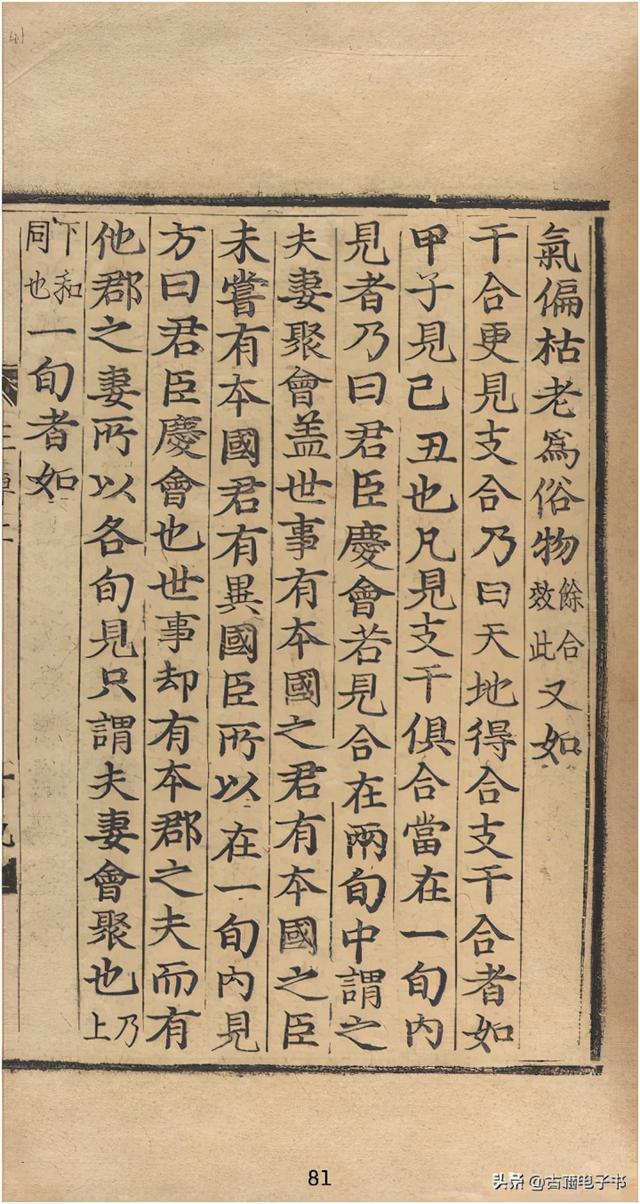 氣偏枯老為俗物餘合效此又如
干合更見支合乃曰天地得合支干合者如
甲子見己丑也凡見支干俱合當在一旬內
見者乃曰君臣慶會若見合在兩旬中謂之
夫妻聚會盖世事有本國之君有本國之臣
未嘗有本國君有異國臣所以在一旬內見
方曰君臣慶會也世事却有本郡之夫而有
他郡之妻所以各旬見只謂夫妻會聚也乃上
下和同也一旬者如
81
头条 @古籍电子书